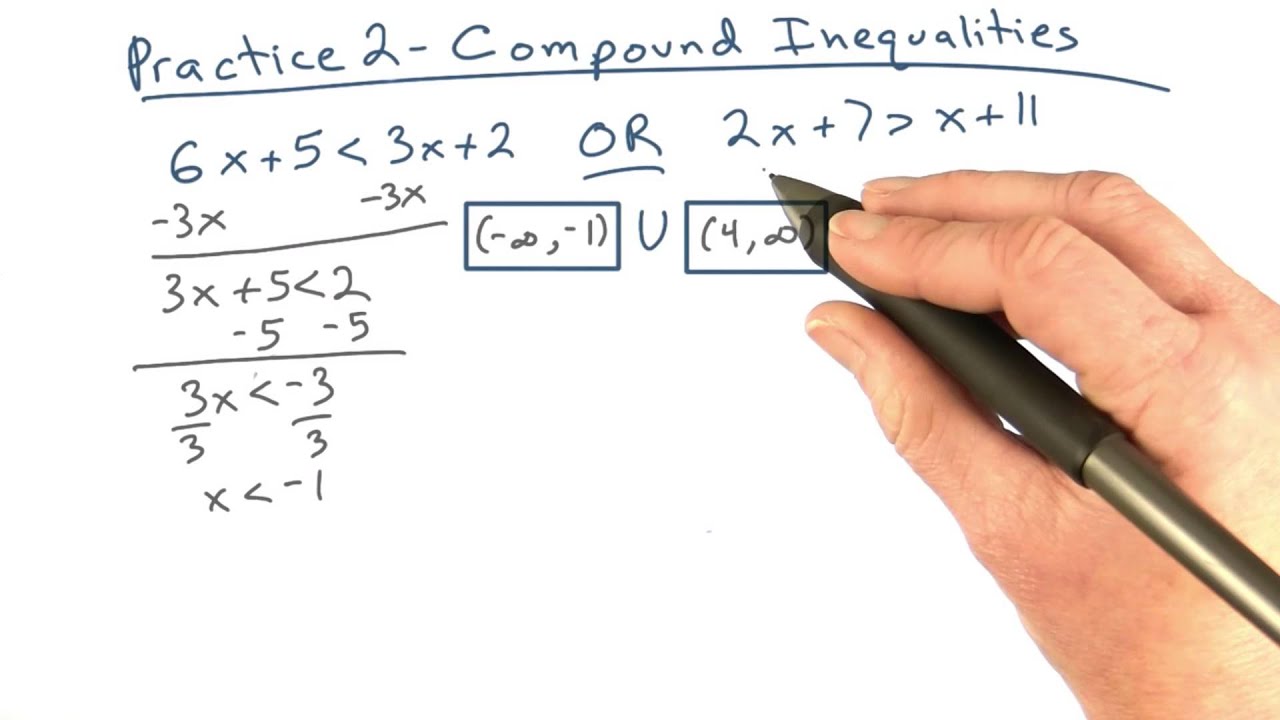 Practice 2 - Compound Inequalities
6x + 5 < 3x + 2 OR 2x + 7 > x + 11
-3x -3x
(-∞, -1) ∪ (4, ∞)
3x + 5 < 2
-5 -5
3x < -3
3 3
x < -1